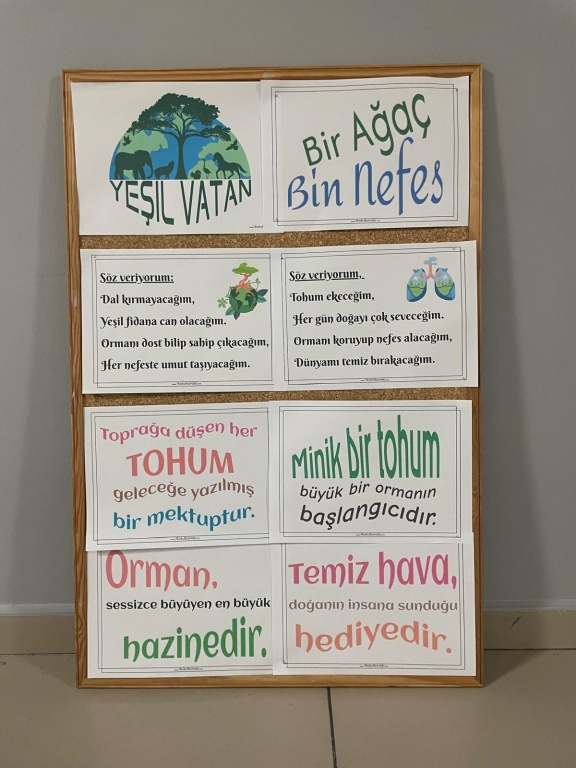 YEŞİL VATAN
Bir Ağaç
Bin Nefes
Söz veriyorum:
Dal kırmayacağım,
Yeşil fidana can olacağım.
Ormanı dost bilip sahip çıkacağım,
Her nefeste umut taşıyacağım.
Söz veriyorum,
Tohum ekeceğim,
Her gün doğayı çok seveceğim.
Ormanı koruyup nefes alacağım,
Dünyamı temiz bırakacağım.
Toprağa düşen her
TOHUM
geleceğe yazılmış
bir mektuptur.
Minik bir tohum
büyük bir ormanın
başlangıcıdır.
Orman,
sessizce büyüyen en büyük
hazinedir.
Temiz hava,
doğanın insana sunduğu
hediyedir.